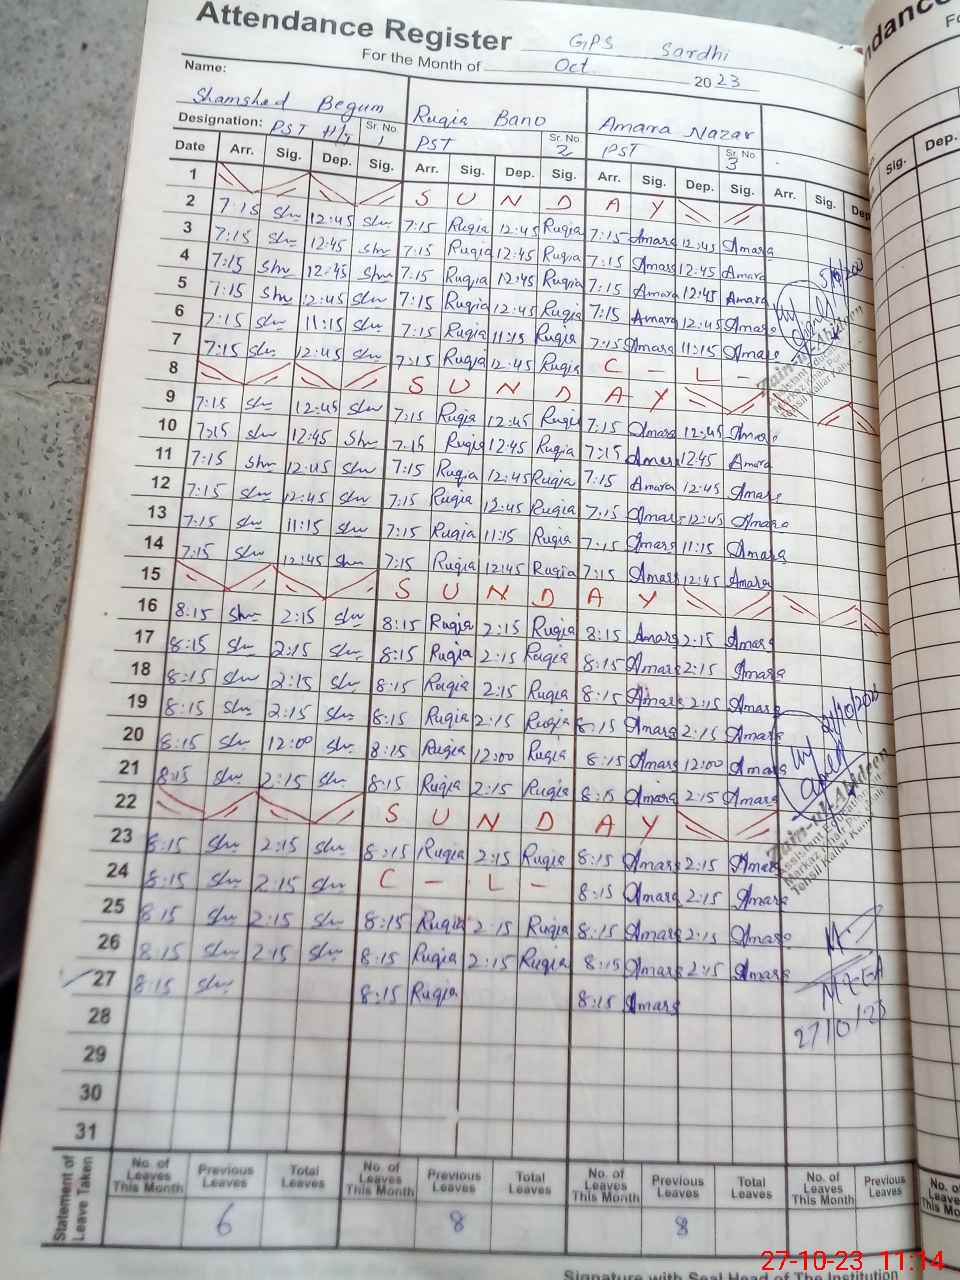 Attendance Register GPS Sardhi
For the Month of Oct. 2023
Name:
Shamshad Begum Ruqia Bano Amara Nazar
Designation: PST H/T Sr. No. 1 PST Sr. No. 2 PST Sr. No. 3
Date Arr. Sig. Dep. Sig. Arr. Sig. Dep. Sig. Arr. Sig. Dep. Sig. Arr. Sig. Dep.
1 S U N D A Y
2 7:15 Sh 12:45 Sh 7:15 Ruqia 12:45 Ruqia 7:15 Amara 12:45 Amara
3 7:15 Sh 12:45 Sh 7:15 Ruqia 12:45 Ruqia 7:15 Amara 12:45 Amara
4 7:15 Sh 12:45 Sh 7:15 Ruqia 12:45 Ruqia 7:15 Amara 12:45 Amara
5 7:15 Sh 12:45 Sh 7:15 Ruqia 12:45 Ruqia 7:15 Amara 12:45 Amara
6 7:15 Sh 11:15 Sh 7:15 Ruqia 11:15 Ruqia 7:15 Amara 11:15 Amara
7 7:15 Sh 12:45 Sh 7:15 Ruqia 12:45 Ruqia C - L -
8 S U N D A Y
9 7:15 Sh 12:45 Sh 7:15 Ruqia 12:45 Ruqia 7:15 Amara 12:45 Amara
10 7:15 Sh 12:45 Sh 7:15 Ruqia 12:45 Ruqia 7:15 Amara 12:45 Amara
11 7:15 Sh 12:45 Sh 7:15 Ruqia 12:45 Ruqia 7:15 Amara 12:45 Amara
12 7:15 Sh 12:45 Sh 7:15 Ruqia 12:45 Ruqia 7:15 Amara 12:45 Amara
13 7:15 Sh 11:15 Sh 7:15 Ruqia 11:15 Ruqia 7:15 Amara 11:15 Amara
14 7:15 Sh 12:45 Sh 7:15 Ruqia 12:45 Ruqia 7:15 Amara 12:45 Amara
15 S U N D A Y
16 8:15 Sh 2:15 Sh 8:15 Ruqia 2:15 Ruqia 8:15 Amara 2:15 Amara
17 8:15 Sh 2:15 Sh 8:15 Ruqia 2:15 Ruqia 8:15 Amara 2:15 Amara
18 8:15 Sh 2:15 Sh 8:15 Ruqia 2:15 Ruqia 8:15 Amara 2:15 Amara
19 8:15 Sh 2:15 Sh 8:15 Ruqia 2:15 Ruqia 8:15 Amara 2:15 Amara
20 8:15 Sh 12:00 Sh 8:15 Ruqia 12:00 Ruqia 8:15 Amara 12:00 Amara
21 8:15 Sh 2:15 Sh 8:15 Ruqia 2:15 Ruqia 8:15 Amara 2:15 Amara
22 S U N D A Y
23 8:15 Sh 2:15 Sh 8:15 Ruqia 2:15 Ruqia 8:15 Amara 2:15 Amara
24 8:15 Sh 2:15 Sh C - L - 8:15 Amara 2:15 Amara
25 8:15 Sh 2:15 Sh 8:15 Ruqia 2:15 Ruqia 8:15 Amara 2:15 Amara
26 8:15 Sh 2:15 Sh 8:15 Ruqia 2:15 Ruqia 8:15 Amara 2:15 Amara
27 8:15 Sh 8:15 Ruqia 8:15 Amara
28
29
30
31
Zain-ul-Abideen
Tehsil Kallar
MEA
27/10/23
Statement of Leave Taken
No. of Leaves This Month Previous Leaves Total Leaves No. of Leaves This Month Previous Leaves Total Leaves No. of Leaves This Month Previous Leaves Total Leaves No. of Leaves This Month Previous Leaves
6 8 8
Signature with Seal Head of The Institution
Sig. Dep.
27-10-23 11:14